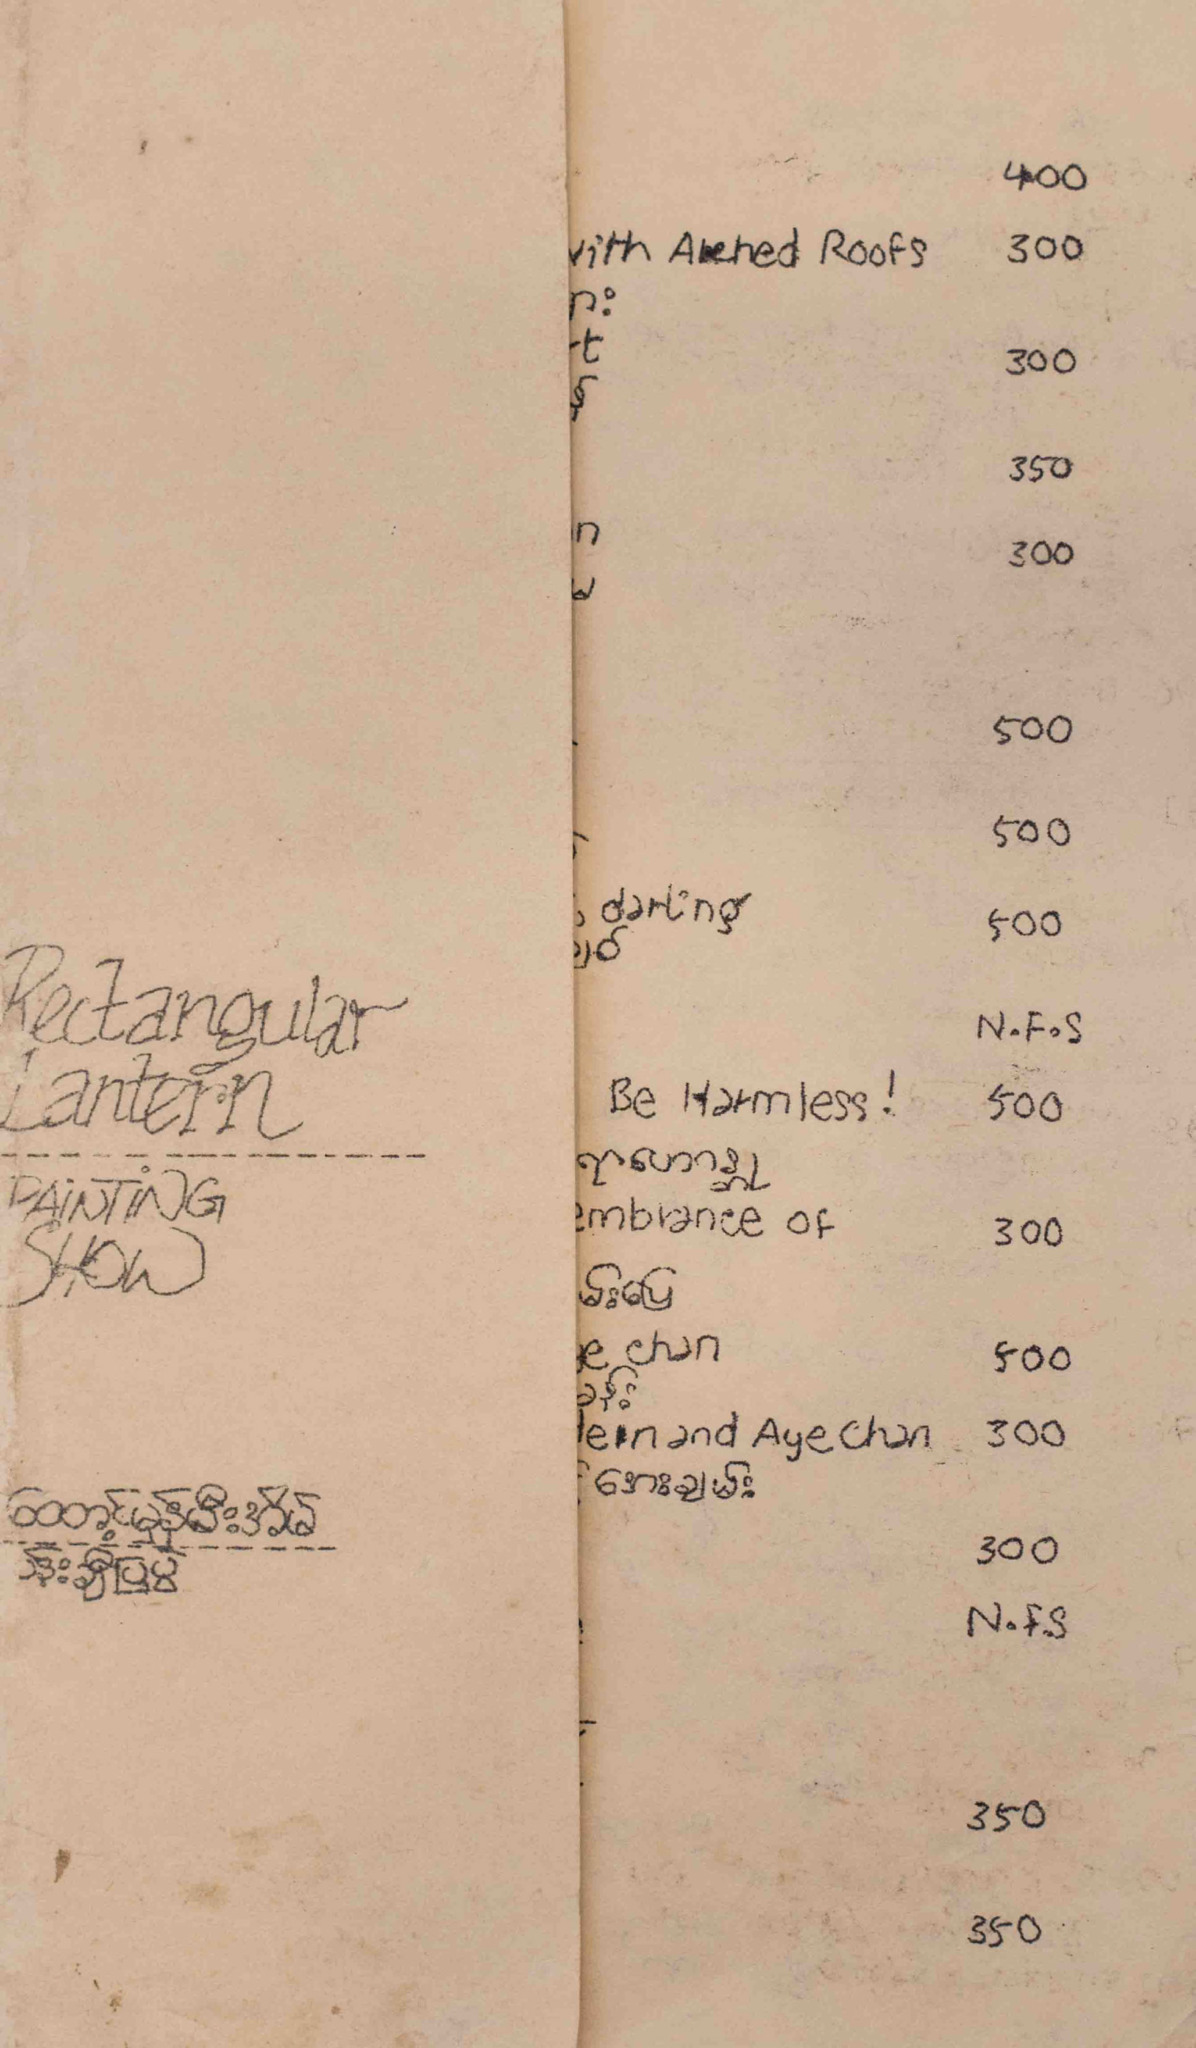 Rectangular
Lantern
PAINTING
SHOW
ထောင့်မှန်မီးအိမ်
ပန်းချီပြပွဲ
400
with Arched Roofs 300
300
350
300
500
500
darling
500
N.F.S
Be Harmless! 500
embrance of 300
မ်းပြေ
e chan 500
lein and Aye chan 300
အေးချမ်း
300
N.F.S
350
350